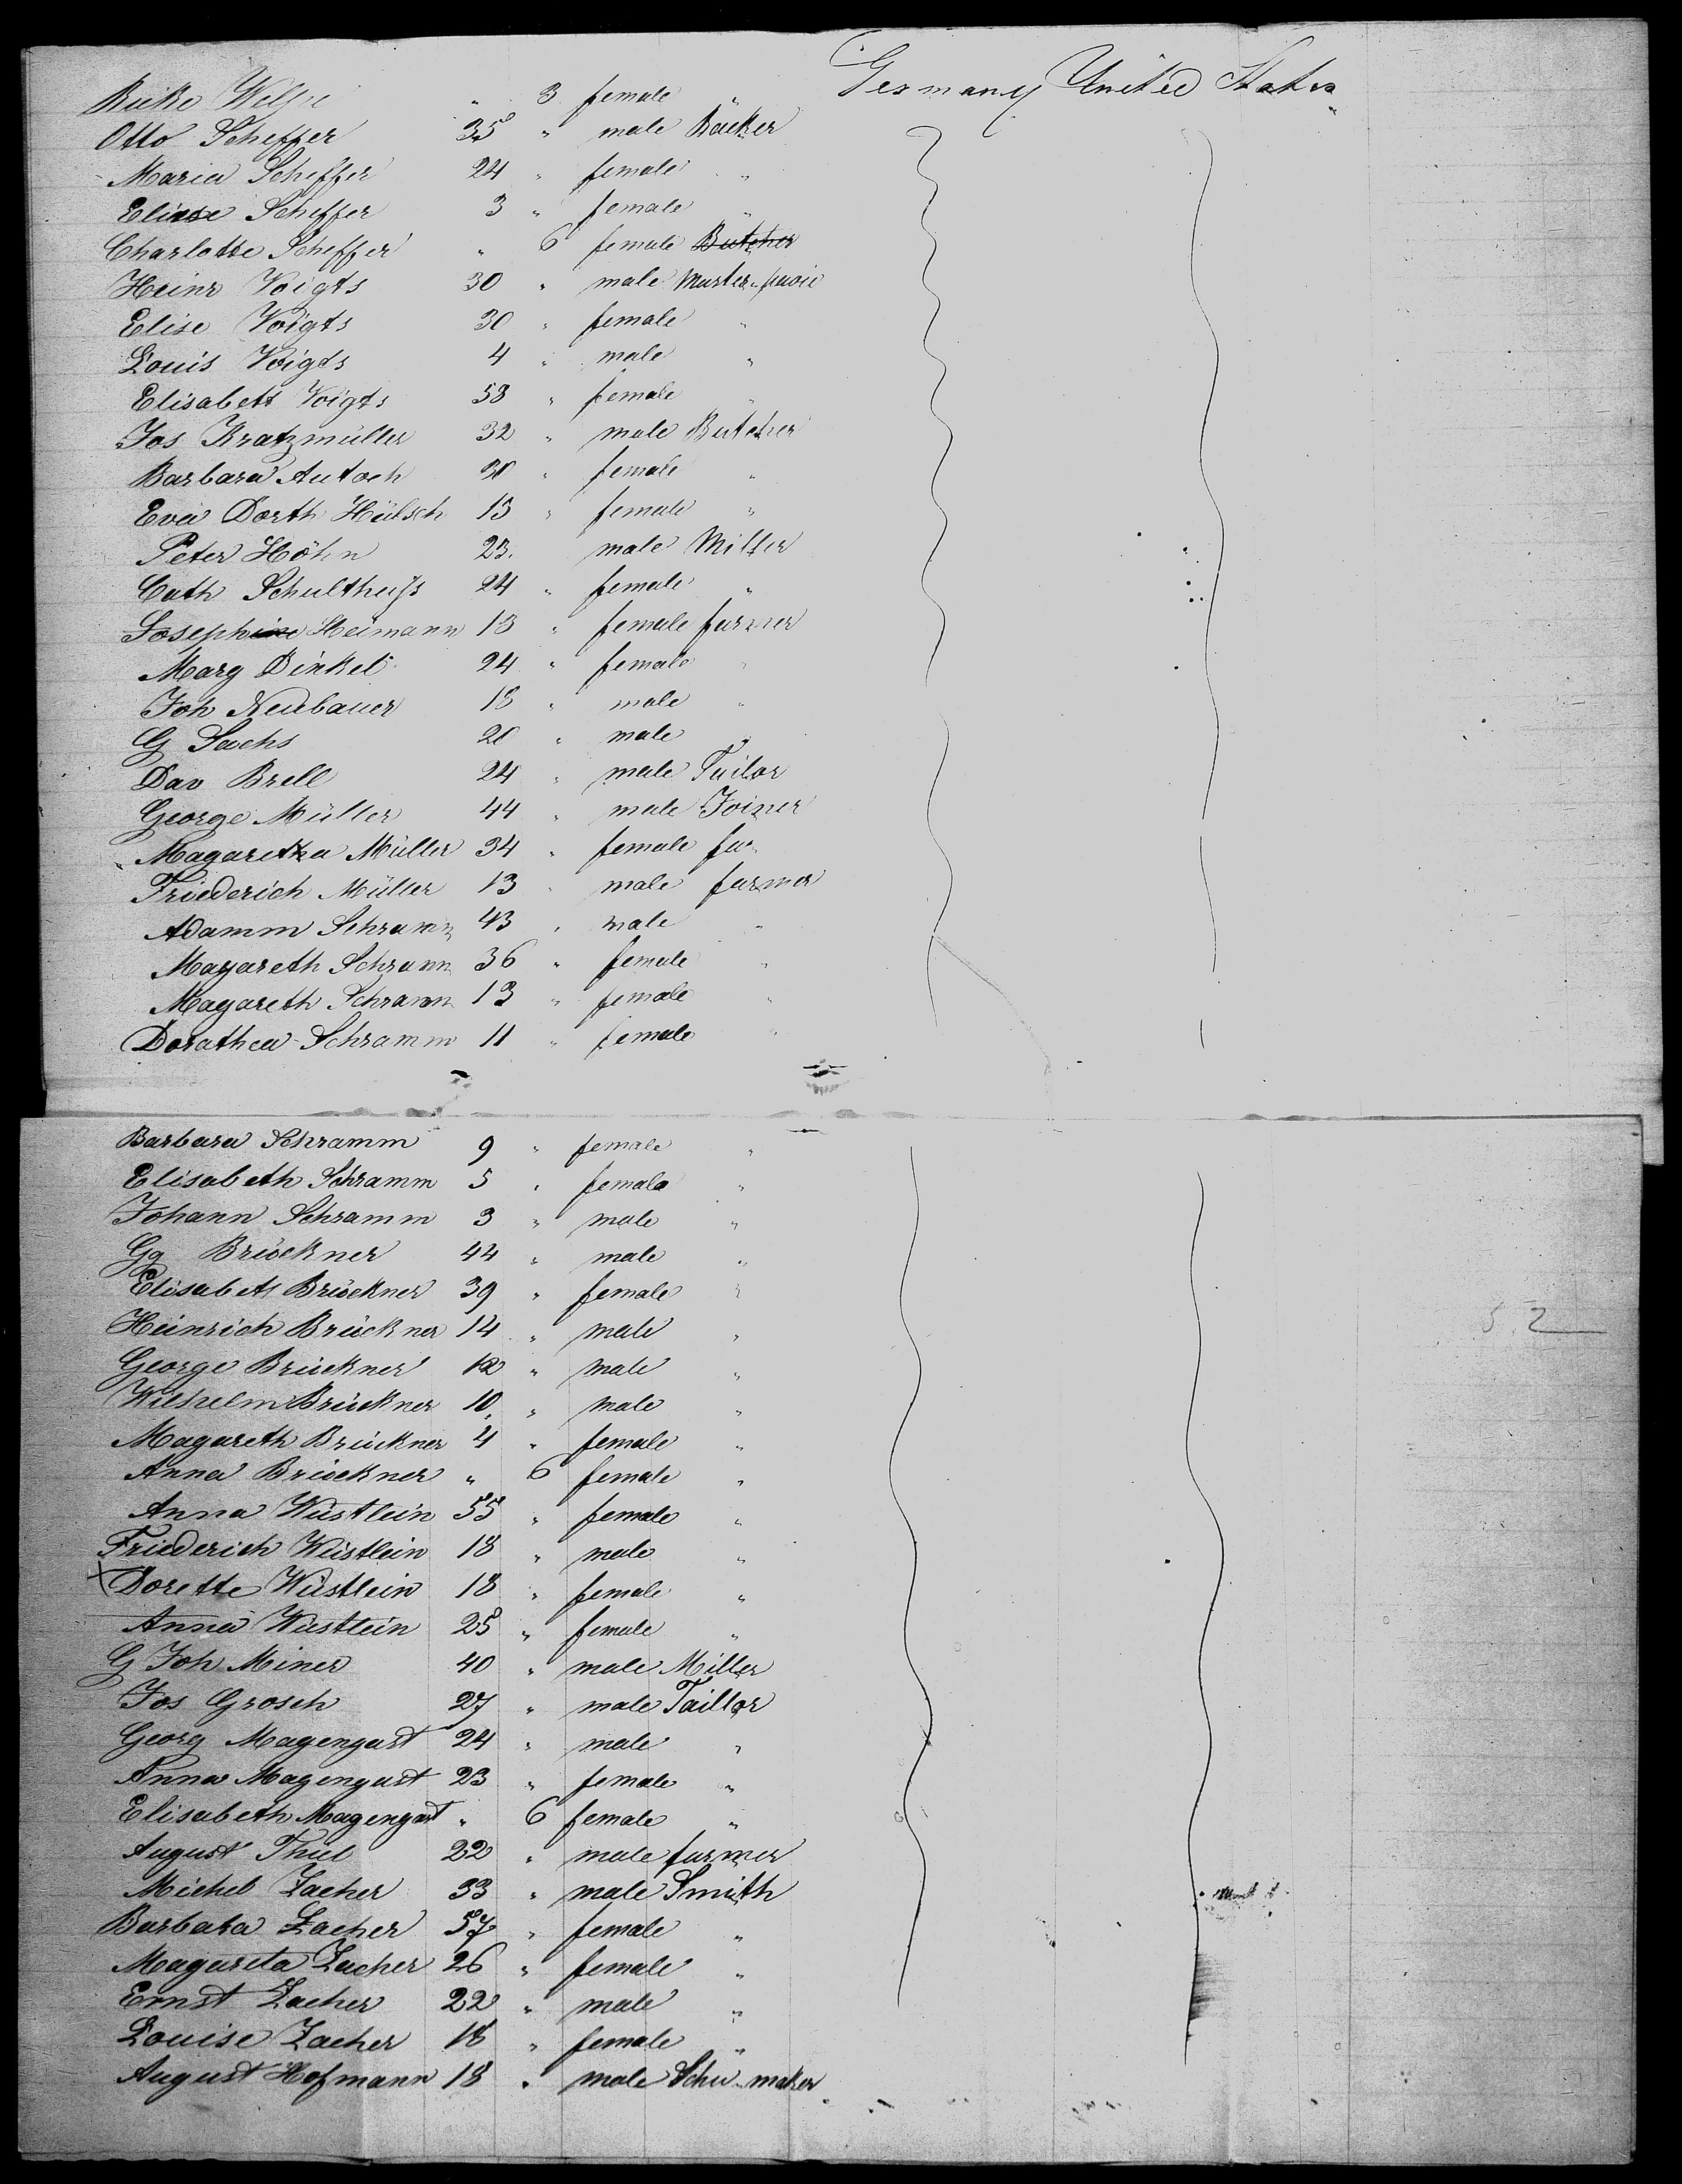 Rieke Welpe " 3 female " Germany United States
Otto Scheffer 35 " male Bäcker "
Maria Scheffer 24 " female "
Eliese Scheffer 3 " female "
Charlotte Scheffer " 6 female Butcher
Heinr Voigts 30 " male
Elise Voigts 30 " female "
Louis Voigts 4 " male "
Elisabett Voigts 58 " female "
Jos Kratzmüller 32 " male Butcher
Barbara Autoch 30 " female "
Eva Dorth Hülsch 13 " female "
Peter Höhn 23. male Miller
Cath Schultheß 24 " female "
Joseph Heimann 18 " female farmer
Marg Dinkel 24 " female "
Joh Neubauer 18 " male "
G Sachs 20 " male "
Dav Brell 24 " male Tailor
George Müller 44 " male Joiner
Magaretha Müller 34 " female fa
Friederich Müller 13 " male farmer
Adamm Schramm 43 " male "
Magareth Schramm 36 " female "
Magareth Schramm 13 " female "
Dorathea Schramm 11 " female "
Barbara Schramm 9 " female "
Elisabeth Schramm 5 " female "
Johann Schramm 3 " male "
Gg Brückner 44 " male "
Elisabeth Brückner 39 " female "
Heinrich Brückner 14 " male "
George Brückner 12 " male "
Wilhelm Brückner 10 " male "
Magareth Brückner 4 " female "
Anna Brückner " 6 female "
Anna Wüstlein 55 " female "
Friederich Wüstlein 18 " male "
x Dorette Wüstlein 18 " female "
Anna Wüstlein 25 " female "
G Joh Miner 40 " male Miller
Jos Grosch 27 " male Taillor
Georg Magengast 24 " male "
Anna Magengast 23 " female "
Elisabeth Magengast " 6 female "
August Thiel 22 " male farmer
Michel Zacher 33 " male Smith
Barbara Zacher 57 " female "
Magareta Zacher 26 " female "
Ernst Zacher 22 " male "
Louise Zacher 18 " female "
August Hofmann 18 " male Schu maker
52